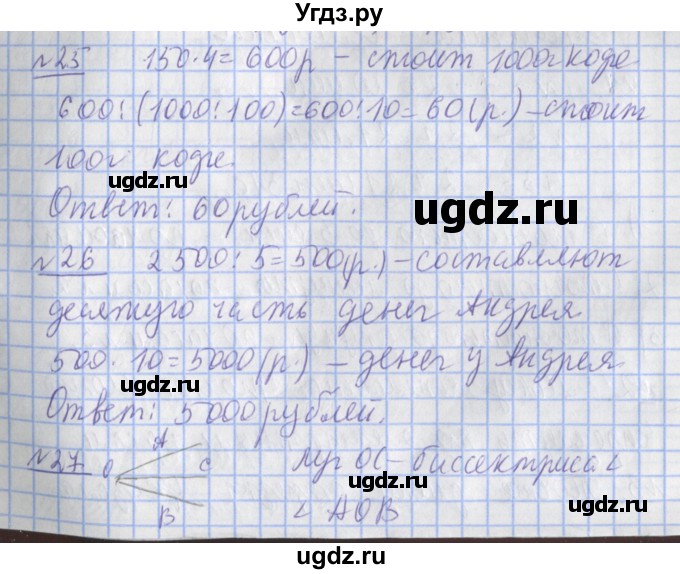 Угдз.ру
№25 150·4=600р – стоит 1000г кофе
600:(1000:100)=600:10=60(р.) – стоит
100г кофе.
ugdz.ru
ugdz.ru
Ответ: 60 рублей.
ugdz.ru
ugdz.ru
№26 2500:5=500(р.) – составляют
десятую часть денег Андрея
ugdz.ru
500·10=5000(р.) – денег у Андрея
ugdz.ru
Ответ: 5000 рублей.
№27 О А С В луч ОС – биссектриса ∠
∠ АОВ
ugdz.ru
ugdz.ru
ugdz.ru